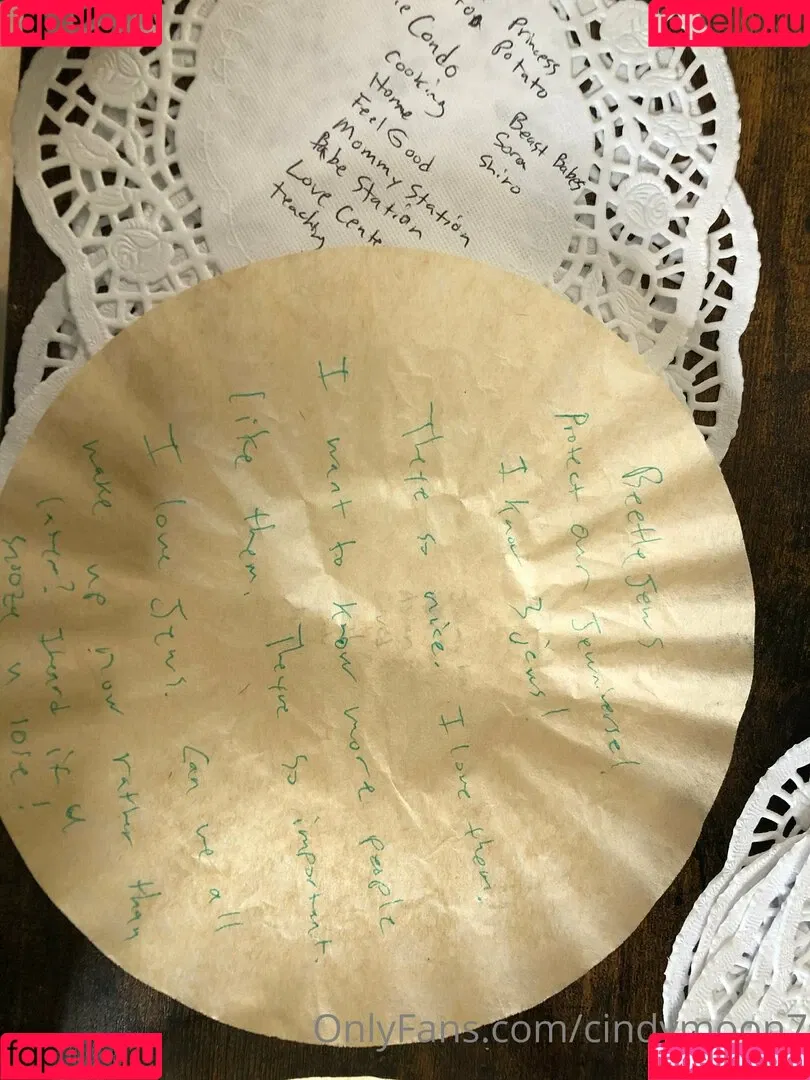 fapello.ru
fapello.ru
Princess
Potato
Condo
Cooking
Home
Feel Good
Mommy Station
Babe Station
Love Cente
teaching
Beast Babes
Sora
Shiro
BeetleJews
Protect our Jewniverse!
I know 3 jews!
Theye so nice. I love them.
I want to know more people
like them. Theyre so important.
I love Jews. Can we all
make up now rather than
later? I heard if u
snooze u lose!
OnlyFans.com/cindymoon7
fapello.ru
fapello.ru